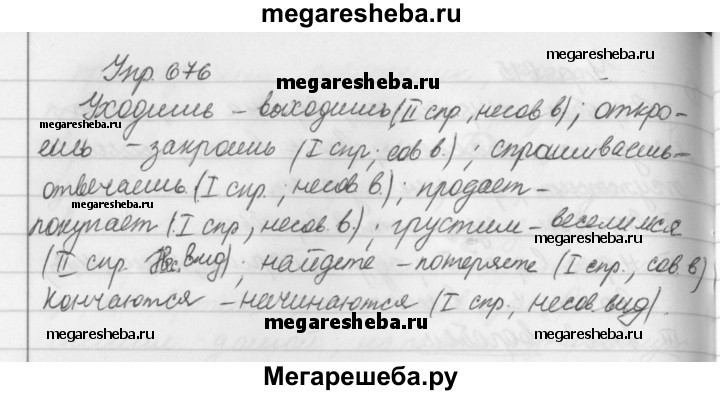 megaresheba.ru
Упр. 676
megaresheba.ru
Уходишь - выходишь (II спр., несов. в.); откро-
megaresheba.ru
ешь - закроешь (I спр.; сов в.); спрашиваешь -
отвечаешь (I спр.; несов в.); продает -
покупает (I спр., несов. в.); грустим - веселимся
(II спр. вид); найдете - потеряете (I спр., сов. в)
кончаются - начинаются (I спр., несов. вид).
megaresheba.ru
megaresheba.ru
megaresheba.ru
megaresheba.ru
Мегарешеба.ру